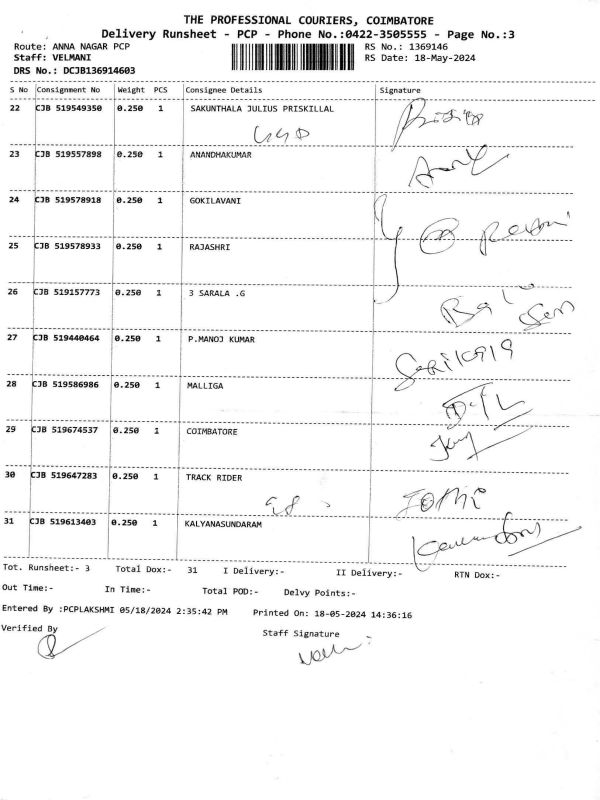 THE PROFESSIONAL COURIERS, COIMBATORE
Delivery Runsheet - PCP - Phone No.:0422-3505555 - Page No.:3
Route: ANNA NAGAR PCP RS No.: 1369146
Staff: VELMANI RS Date: 18-May-2024
DRS No.: DCJB136914603
S No Consignment No Weight PCS Consignee Details Signature
22 CJB 519549350 0.250 1 SAKUNTHALA JULIUS PRISKILLAL
23 CJB 519557898 0.250 1 ANANDHAKUMAR
24 CJB 519578918 0.250 1 GOKILAVANI
25 CJB 519578933 0.250 1 RAJASHRI
26 CJB 519157773 0.250 1 3 SARALA .G
27 CJB 519440464 0.250 1 P.MANOJ KUMAR
28 CJB 519586986 0.250 1 MALLIGA
29 CJB 519674537 0.250 1 COIMBATORE
30 CJB 519647283 0.250 1 TRACK RIDER
31 CJB 519613403 0.250 1 KALYANASUNDARAM
Tot. Runsheet:- 3 Total Dox:- 31 I Delivery:- II Delivery:- RTN Dox:-
Out Time:- In Time:- Total POD:- Delvy Points:-
Entered By :PCPLAKSHMI 05/18/2024 2:35:42 PM Printed On: 18-05-2024 14:36:16
Verified By Staff Signature